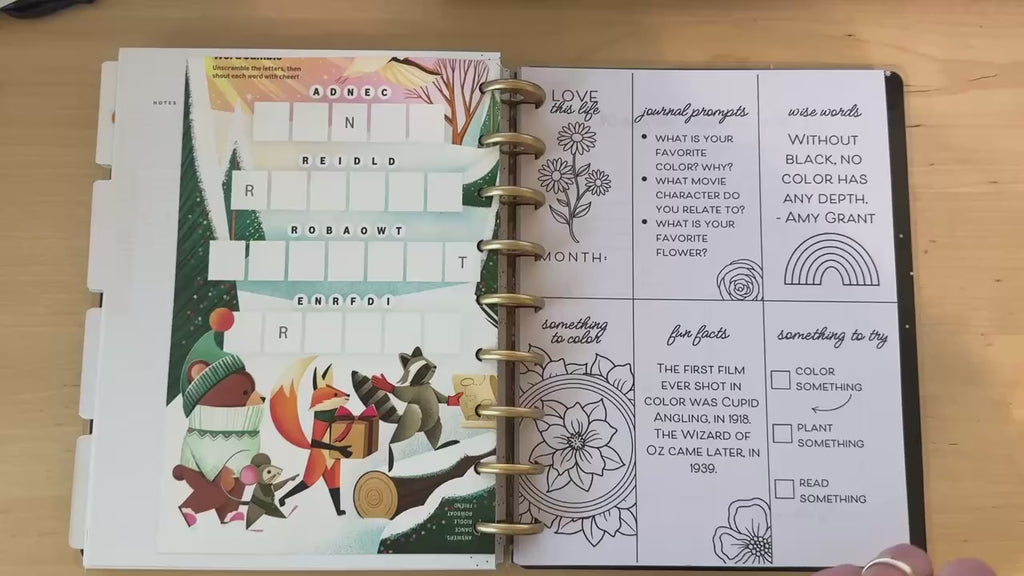 NOTES
Word Jumble
Unscramble the letters, then
shout each word with cheer!
ADNEC
N
REIDLD
R
ROBAOWT
T
ENRFDI
R
ANSWERS:
DANCE
RIDDLE
ROWBOAT
FRIEND
LOVE
this life
MONTH:
journal prompts
• WHAT IS YOUR
FAVORITE
COLOR? WHY?
• WHAT MOVIE
CHARACTER DO
YOU RELATE TO?
• WHAT IS YOUR
FAVORITE
FLOWER?
wise words
WITHOUT
BLACK, NO
COLOR HAS
ANY DEPTH.
- AMY GRANT
something
to color
fun facts
THE FIRST FILM
EVER SHOT IN
COLOR WAS CUPID
ANGLING, IN 1918.
THE WIZARD OF
OZ CAME LATER, IN
1939.
something to try
COLOR
SOMETHING
PLANT
SOMETHING
READ
SOMETHING